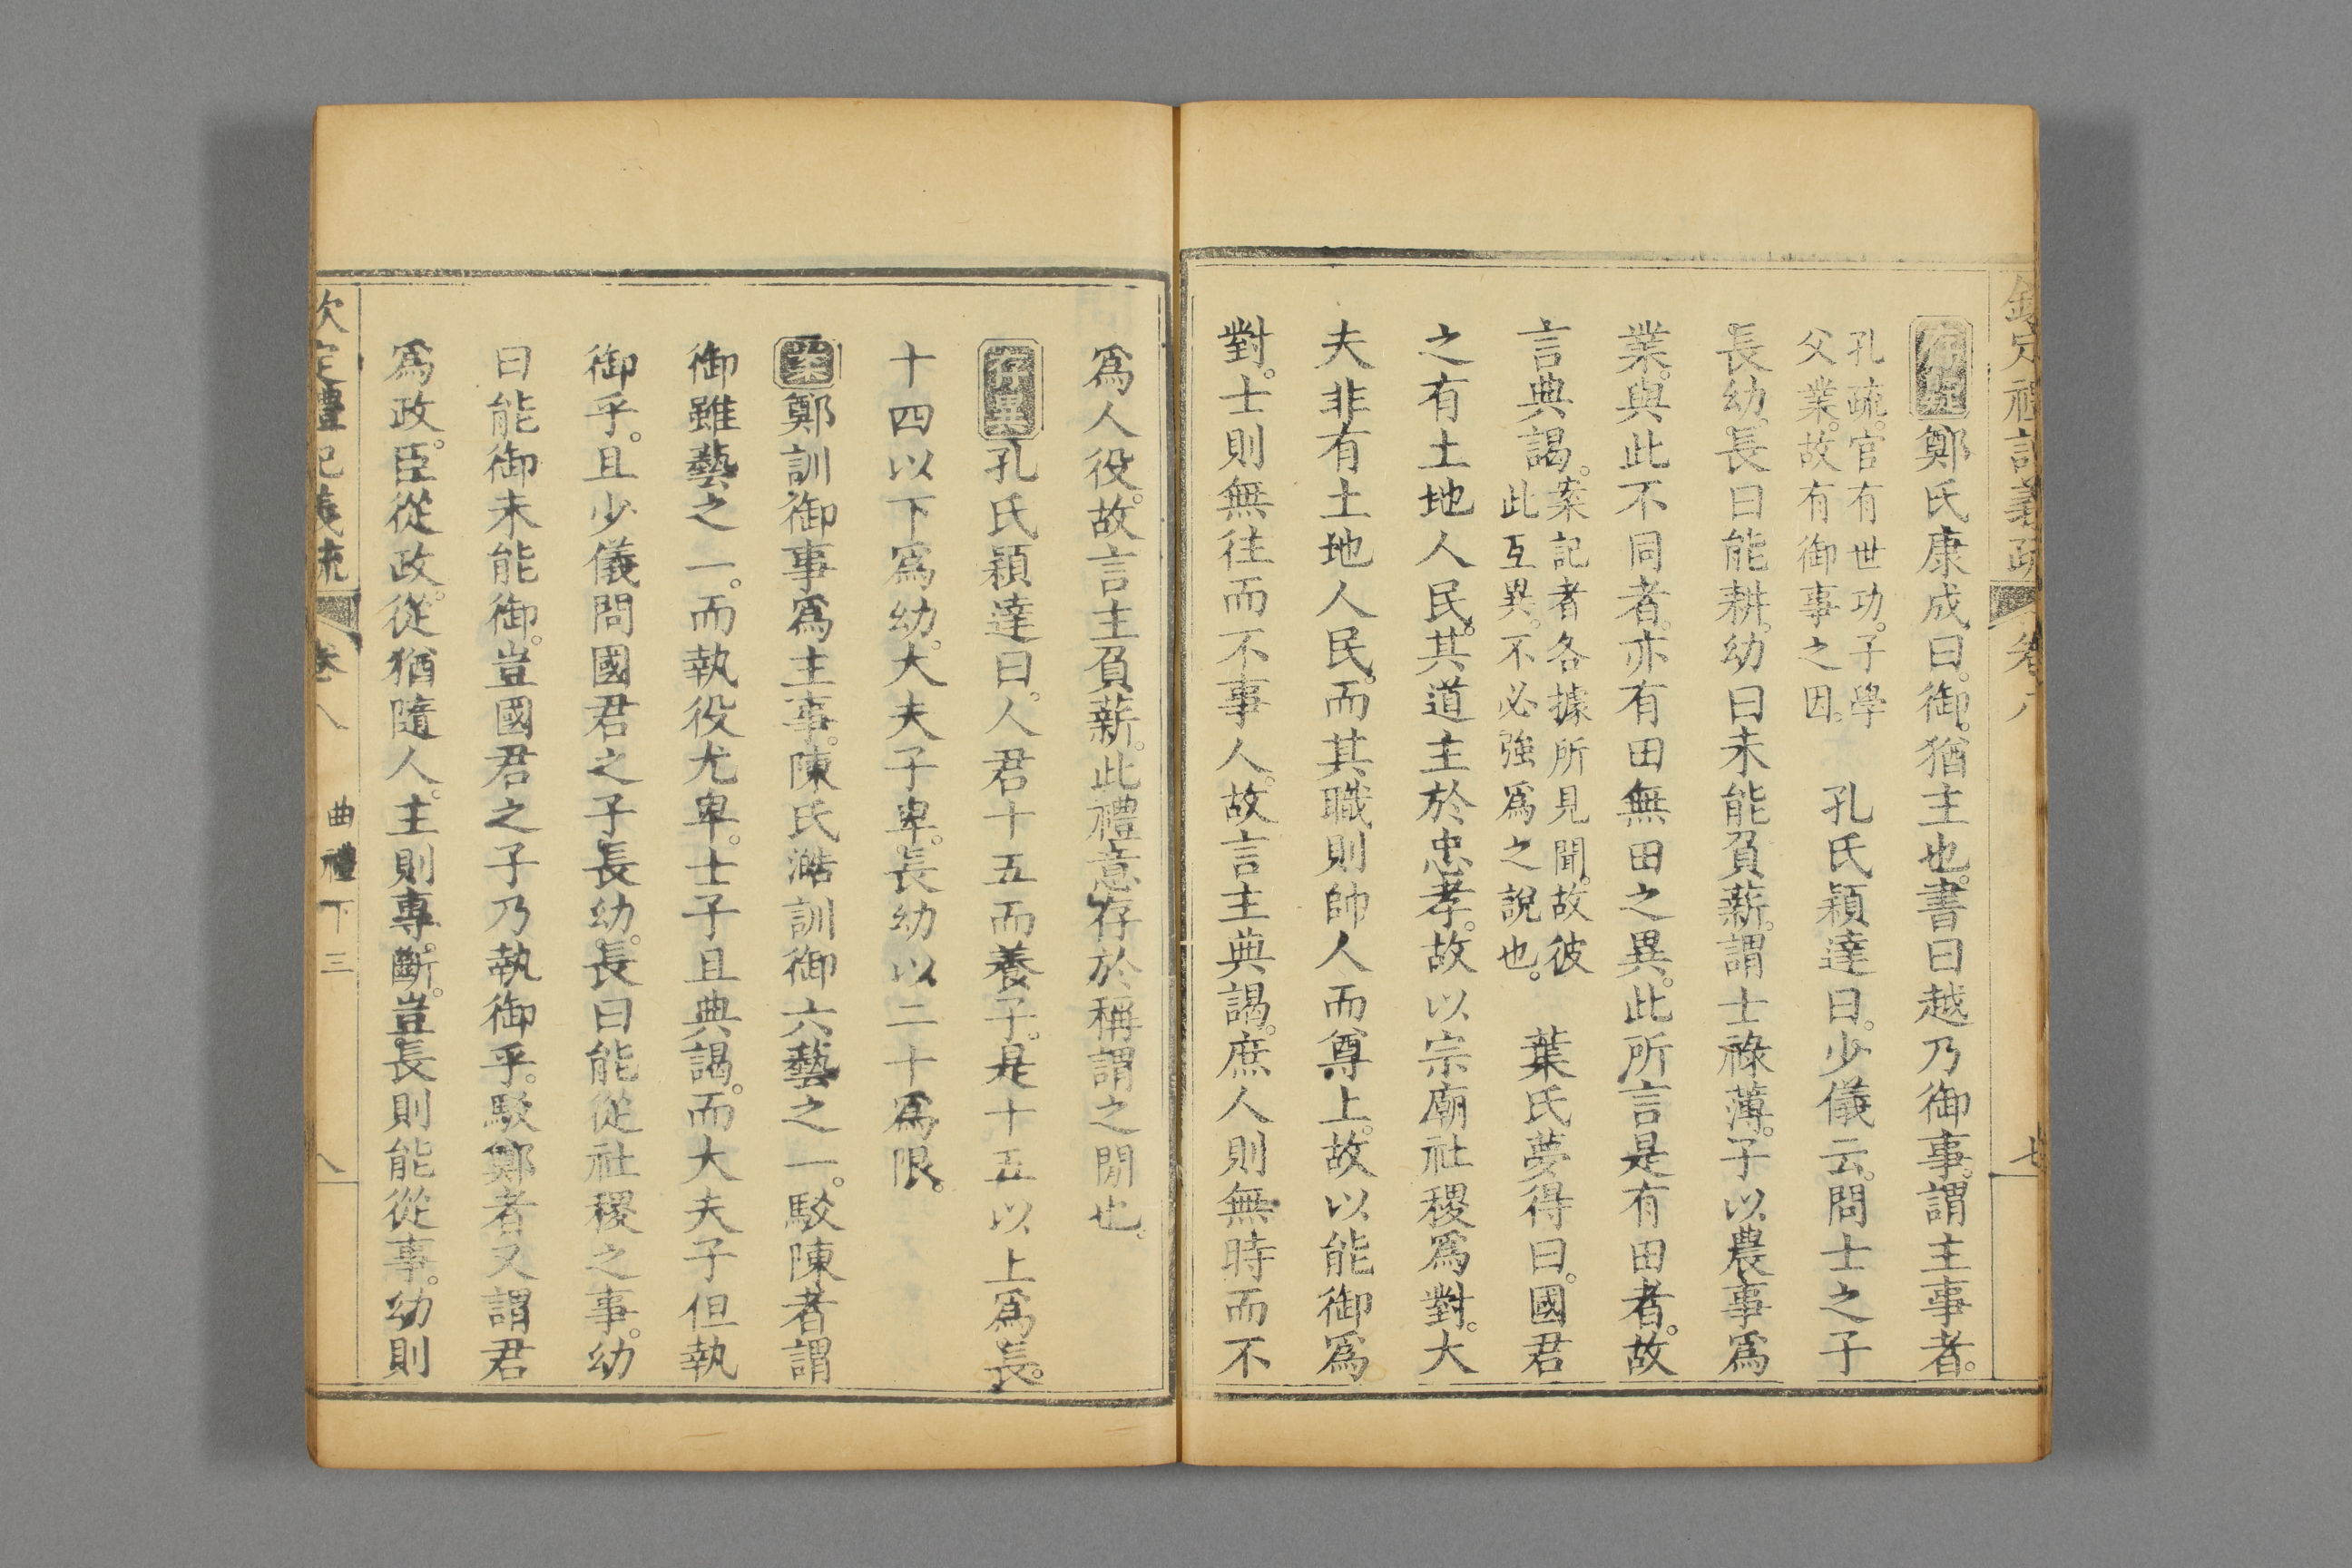 欽定禮記義疏 卷八 七
存疑鄭氏康成曰。御。猶主也。書曰越乃御事。謂主事者。
孔疏。官有世功。子學
父業。故有御事之因。
孔氏穎達曰。少儀云。問士之子
長幼。長曰能耕。幼曰未能負薪。謂士祿薄。子以農事爲
業。與此不同者。亦有田無田之異。此所言是有田者。故
言典謁。
案記者各據所見聞。故彼
此互異。不必強爲之說也。
葉氏夢得曰。國君
之有土地人民。其道主於忠孝。故以宗廟社稷爲對。大
夫非有土地人民。而其職則帥人而尊上。故以能御爲
對。士則無往而不事人。故言主典謁。庶人則無時而不
爲人役。故言主負薪。此禮意存於稱謂之閒也。
存異孔氏穎達曰。人君十五而養子。是十五以上爲長。
十四以下爲幼。大夫子卑。長幼以二十爲限。
案鄭訓御事爲主事。陳氏澔訓御六藝之一。駁陳者謂
御雖藝之一。而執役尤卑。士子且典謁。而大夫子但執
御乎。且少儀問國君之子長幼。長曰能從社稷之事。幼
曰能御未能御。豈國君之子乃執御乎。駁鄭者又謂君
爲政。臣從政。從猶隨人。主則專斷。豈長則能從事。幼則
欽定禮記義疏 卷八 曲禮下三 八